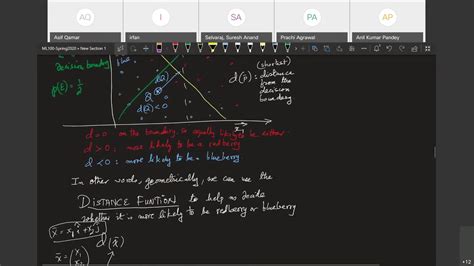 AQ I SA PA AP
Asif Qamar irfan Selvaraj, Suresh Anand Prachi Agrawal Anil Kumar Pandey
ML100-Spring2020 > New Section 1
decision boundary
p(x̄) = 1/2
d(p̄): (shortest)
distance
from the
decision
boundary
d(Q) < 0
x₁
d = 0 on the boundary, so equally likely to be either.
d > 0 : more likely to be a redberry
d < 0 : more likely to be a blueberry
In other words, geometrically, we can use the
DISTANCE FUNTION to help us decide
whether it is more likely to be redberry or blueberry
d(x̄)
+12